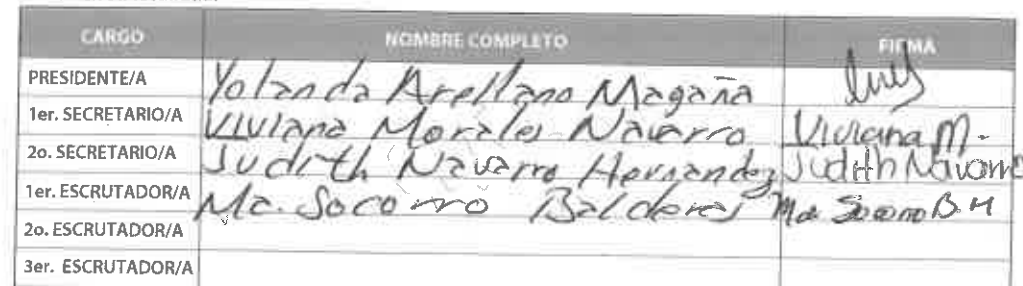 CARGO NOMBRE COMPLETO FIRMA
PRESIDENTE/A Yolanda Arellano Magaña
1er. SECRETARIO/A Viviana Morales Navarro Viviana M.
2o. SECRETARIO/A Judith Navarro Hernandez Judith Navarro
1er. ESCRUTADOR/A Ma. Socorro Balderas Ma Socorro B.H
2o. ESCRUTADOR/A
3er. ESCRUTADOR/A